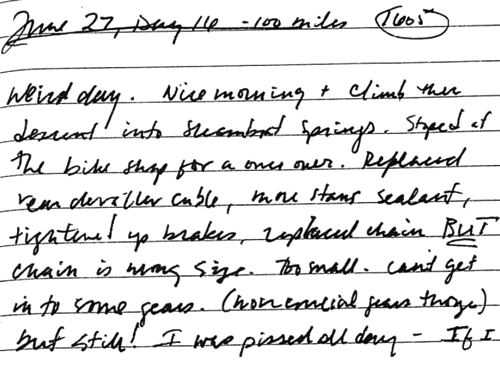 June 27, Day 16 - 100 miles 1605
Weird day. Nice morning + climb then
descent into Steamboat Springs. Stoped at
the bike shop for a once over. Replaced
rear derailler cable, more stans sealant,
tightened up brakes, replaced chain BUT
chain is wrong size. Too small. can't get
in to some gears. (non crucial gears though)
but still! I was pissed all day - If I